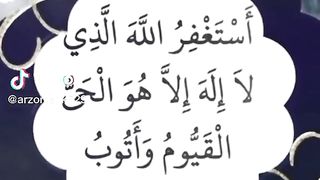 أَسْتَغْفِرُ اللَّهَ الَّذِي
لاَ إِلَهَ إِلاَّ هُوَ الْحَيُّ
الْقَيُّومُ وَأَتُوبُ